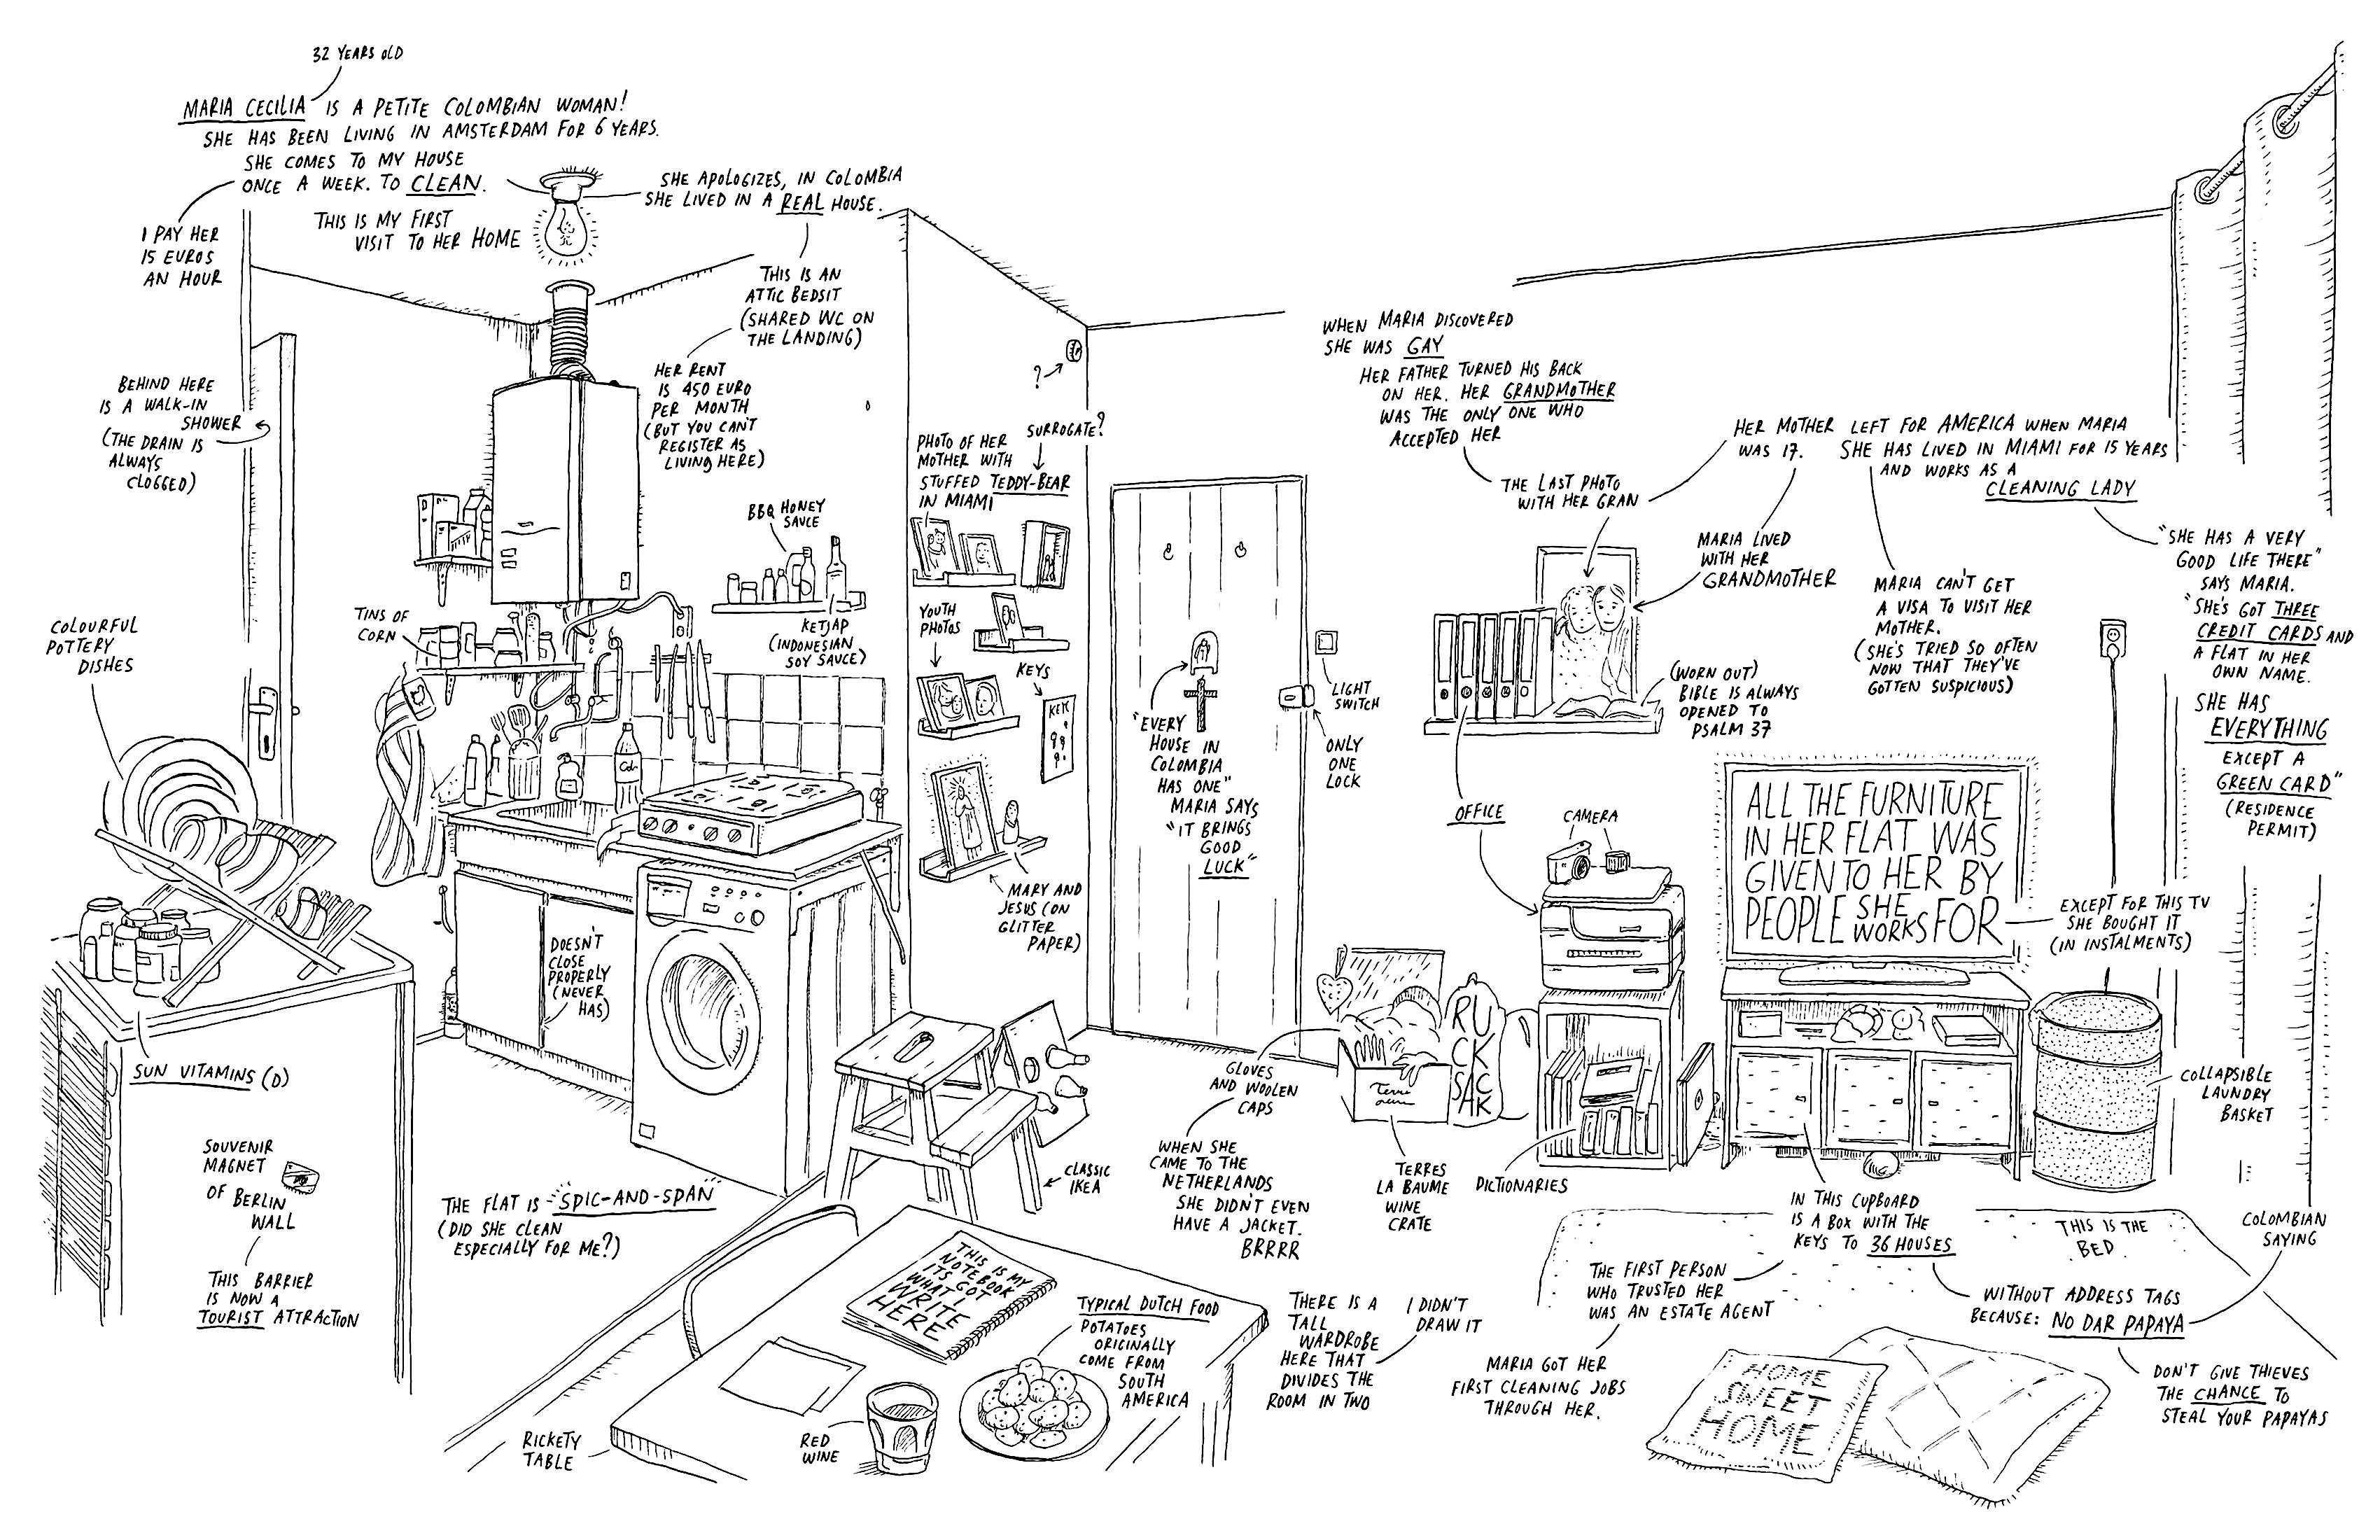 32 YEARS OLD
MARIA CECILIA IS A PETITE COLOMBIAN WOMAN!
SHE HAS BEEN LIVING IN AMSTERDAM FOR 6 YEARS.
SHE COMES TO MY HOUSE
ONCE A WEEK. TO CLEAN.
I PAY HER
15 EUROS
AN HOUR
THIS IS MY FIRST
VISIT TO HER HOME
SHE APOLOGIZES, IN COLOMBIA
SHE LIVED IN A REAL HOUSE.
THIS IS AN
ATTIC BEDSIT
(SHARED WC ON
THE LANDING)
HER RENT
IS 450 EURO
PER MONTH
(BUT YOU CAN'T
REGISTER AS
LIVING HERE)
BEHIND HERE
IS A WALK-IN
SHOWER
(THE DRAIN IS
ALWAYS
CLOGGED)
COLOURFUL
POTTERY
DISHES
TINS OF
CORN
BBQ HONEY
SAUCE
KETJAP
(INDONESIAN
SOY SAUCE)
?
PHOTO OF HER
MOTHER WITH
STUFFED TEDDY-BEAR
IN MIAMI
SURROGATE?
YOUTH
PHOTOS
KEYS
MARY AND
JESUS (ON
GLITTER
PAPER)
"EVERY
HOUSE IN
COLOMBIA
HAS ONE"
MARIA SAYS
"IT BRINGS
GOOD
LUCK"
LIGHT
SWITCH
ONLY
ONE
LOCK
DOESN'T
CLOSE
PROPERLY
(NEVER
HAS)
SUN VITAMINS (D)
SOUVENIR
MAGNET
OF BERLIN
WALL
THIS BARRIER
IS NOW A
TOURIST ATTRACTION
THE FLAT IS "SPIC-AND-SPAN"
(DID SHE CLEAN
ESPECIALLY FOR ME?)
CLASSIC
IKEA
THIS IS MY
NOTEBOOK
ITS GOT
WHAT I
WRITE
HERE
TYPICAL DUTCH FOOD
POTATOES
ORIGINALLY
COME FROM
SOUTH
AMERICA
RICKETY
TABLE
RED
WINE
WHEN MARIA DISCOVERED
SHE WAS GAY
HER FATHER TURNED HIS BACK
ON HER. HER GRANDMOTHER
WAS THE ONLY ONE WHO
ACCEPTED HER
THE LAST PHOTO
WITH HER GRAN
HER MOTHER LEFT FOR AMERICA WHEN MARIA
WAS 17. SHE HAS LIVED IN MIAMI FOR 15 YEARS
AND WORKS AS A
CLEANING LADY
MARIA LIVED
WITH HER
GRANDMOTHER
MARIA CAN'T GET
A VISA TO VISIT HER
MOTHER.
(SHE'S TRIED SO OFTEN
NOW THAT THEY'VE
GOTTEN SUSPICIOUS)
"SHE HAS A VERY
GOOD LIFE THERE"
SAYS MARIA.
"SHE'S GOT THREE
CREDIT CARDS AND
A FLAT IN HER
OWN NAME.
SHE HAS
EVERYTHING
EXCEPT A
GREEN CARD"
(RESIDENCE
PERMIT)
(WORN OUT)
BIBLE IS ALWAYS
OPENED TO
PSALM 37
OFFICE
CAMERA
ALL THE FURNITURE
IN HER FLAT WAS
GIVEN TO HER BY
PEOPLE SHE
WORKS FOR
EXCEPT FOR THIS TV
SHE BOUGHT IT
(IN INSTALMENTS)
RUCKSACK
GLOVES
AND WOOLEN
CAPS
WHEN SHE
CAME TO THE
NETHERLANDS
SHE DIDN'T EVEN
HAVE A JACKET.
BRRRR
TERRES
LA BAUME
WINE
CRATE
DICTIONARIES
COLLAPSIBLE
LAUNDRY
BASKET
IN THIS CUPBOARD
IS A BOX WITH THE
KEYS TO 36 HOUSES
THIS IS THE
BED
COLOMBIAN
SAYING
THE FIRST PERSON
WHO TRUSTED HER
WAS AN ESTATE AGENT
WITHOUT ADDRESS TAGS
BECAUSE: NO DAR PAPAYA
THERE IS A
TALL
WARDROBE
HERE THAT
DIVIDES THE
ROOM IN TWO
I DIDN'T
DRAW IT
MARIA GOT HER
FIRST CLEANING JOBS
THROUGH HER.
DON'T GIVE THIEVES
THE CHANCE TO
STEAL YOUR PAPAYAS
HOME
SWEET
HOME